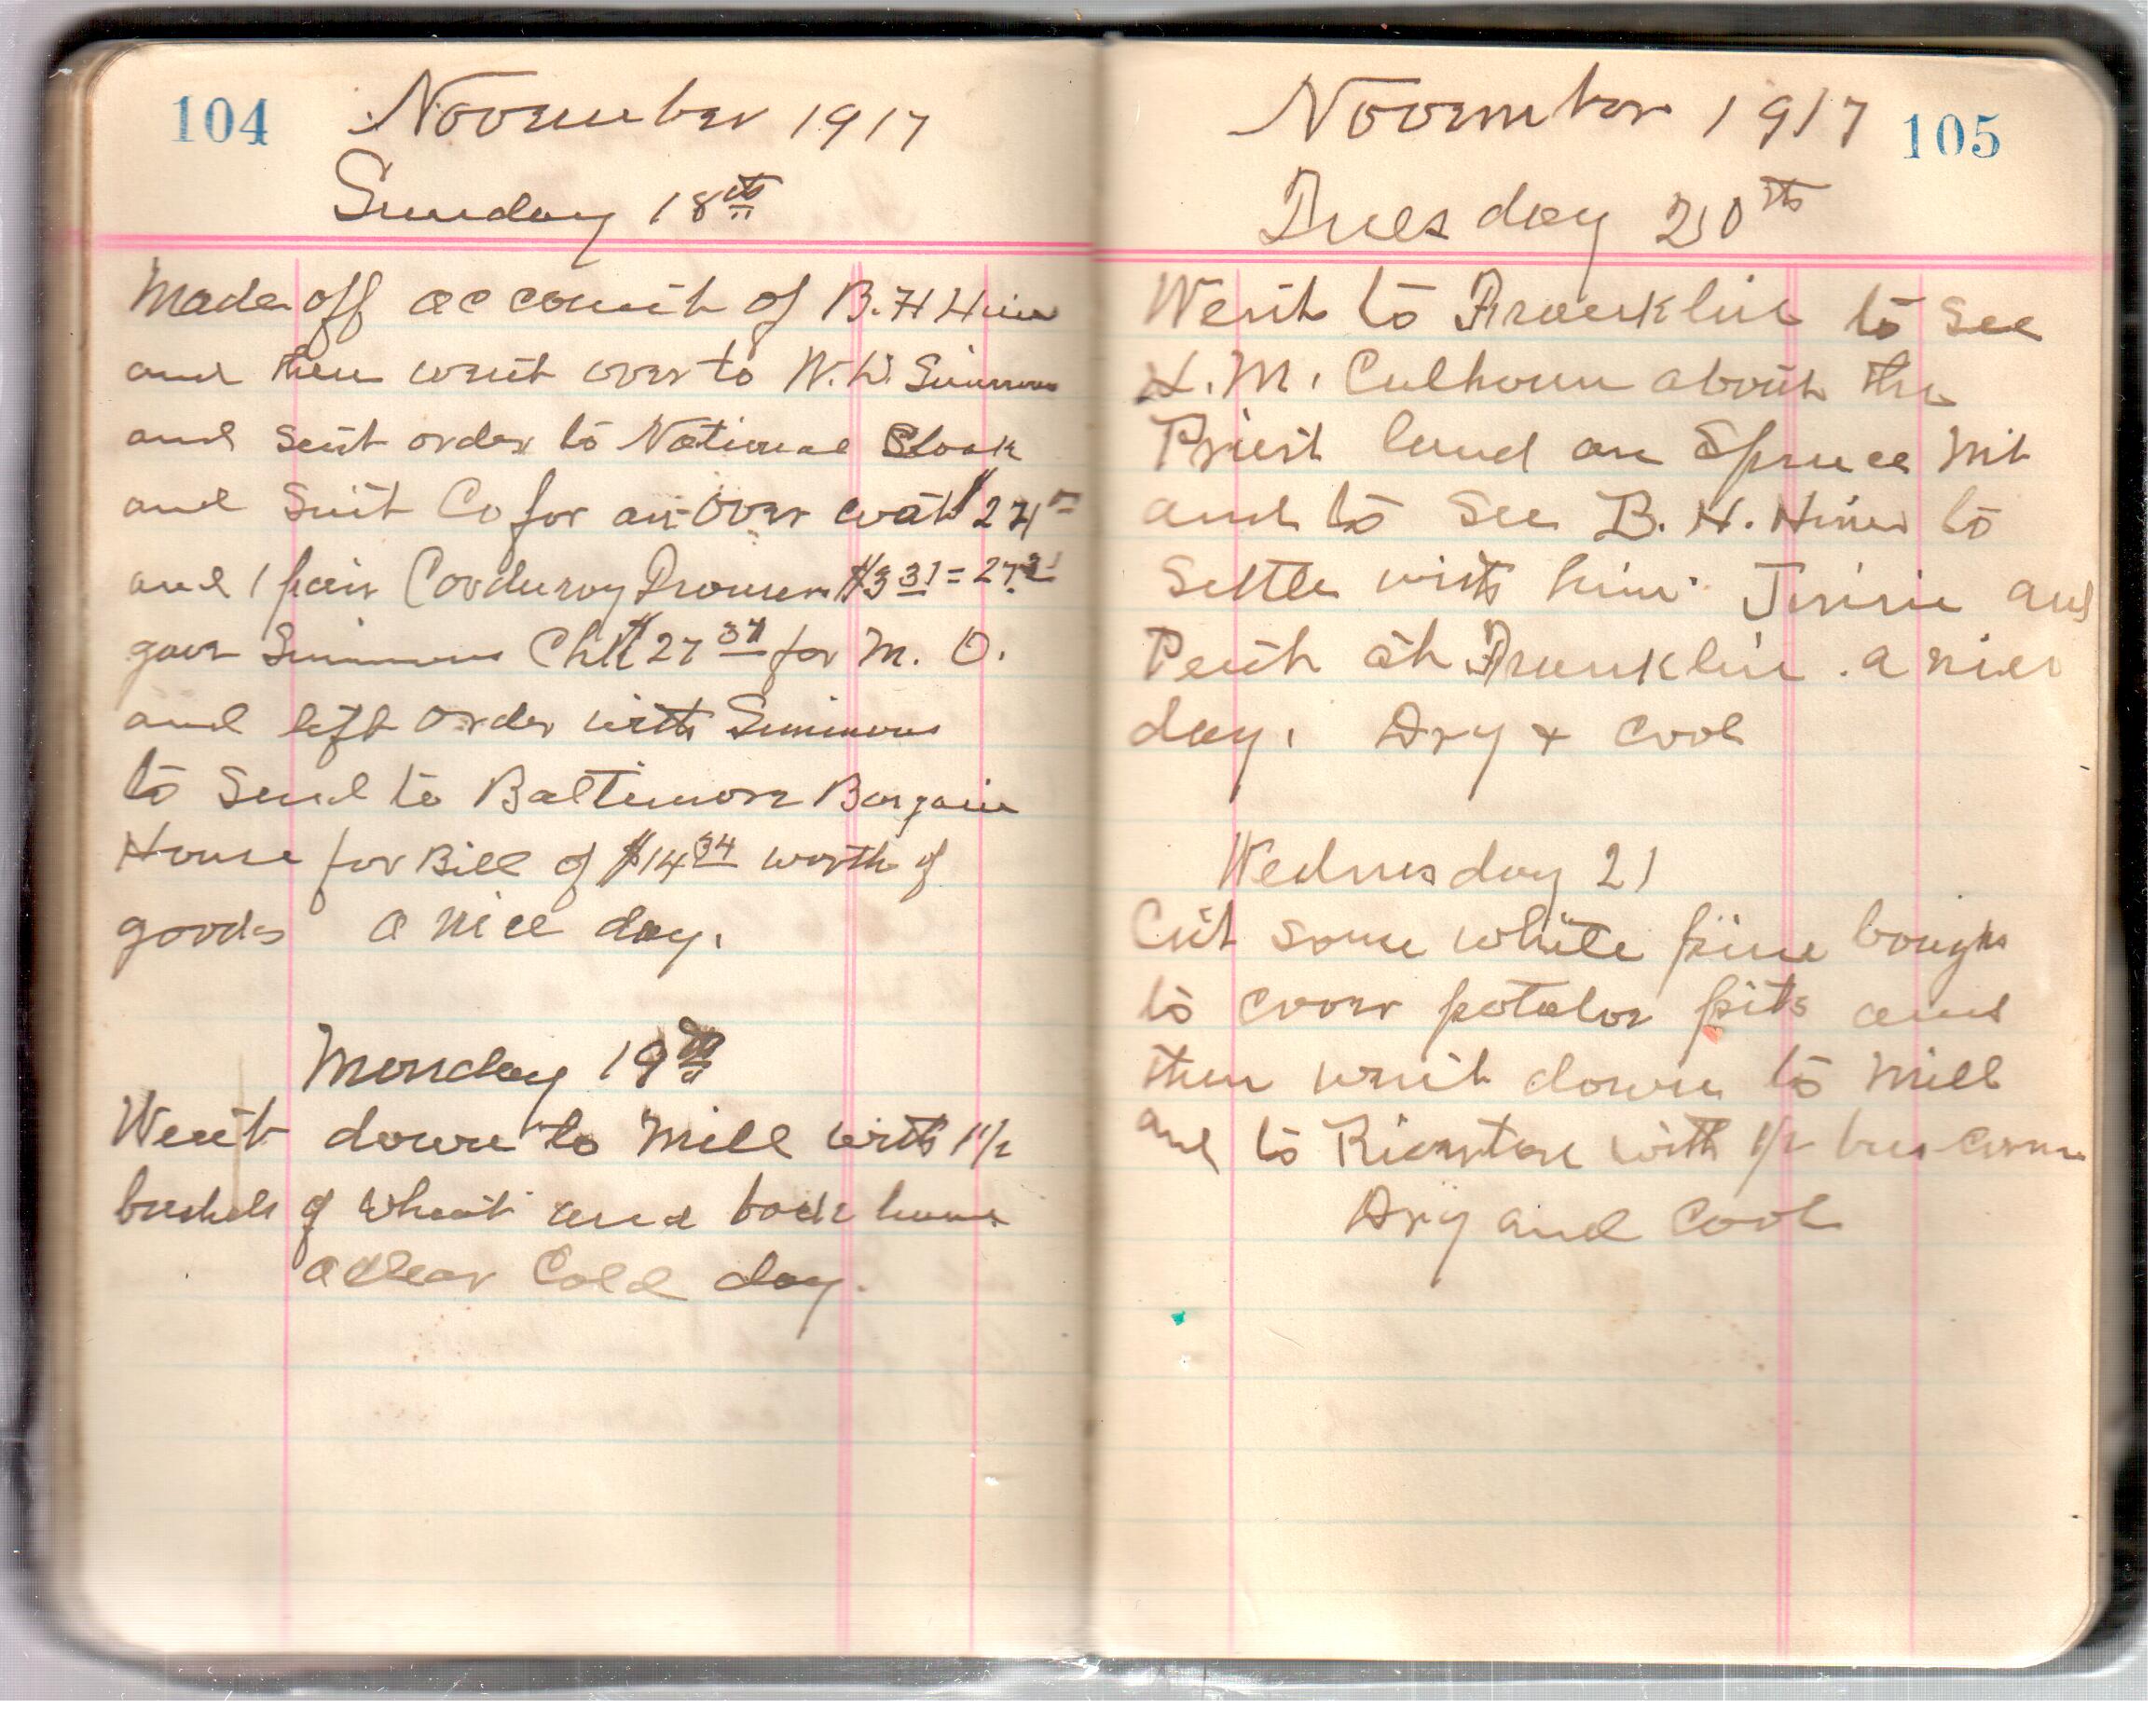 104
November 1917
Sunday 18th
Made off account of B. H Hiner
and then went over to W. W. Simmons
and sent order to National Cloak
and Suit Co for an Over coat $24
and 1 pair Corduroy Trousers $3 31 = 27 31
gave Simmons Chk $27 34 for M. O.
and left order with Simmons
to Send to Baltimore Bargain
House for Bill of $14 34 worth of
goods a nice day.
Monday 19th
Went down to Mill with 1 1/2
bushels of Wheat and back home
a clear Cold day.
November 1917
105
Tuesday 20th
Went to Franklin to See
H. M. Calhoun about the
Priest land on Spruce Mt
and to See B. H. Hiner to
Settle with him. Jinnie and
Pent at Franklin. a nice
day. Dry + Cool
Wednesday 21
Cut some white pine boughs
to cover potatoe pits and
then went down to Mill
and to Riverton with 1/2 bus corn
Dry and Cool